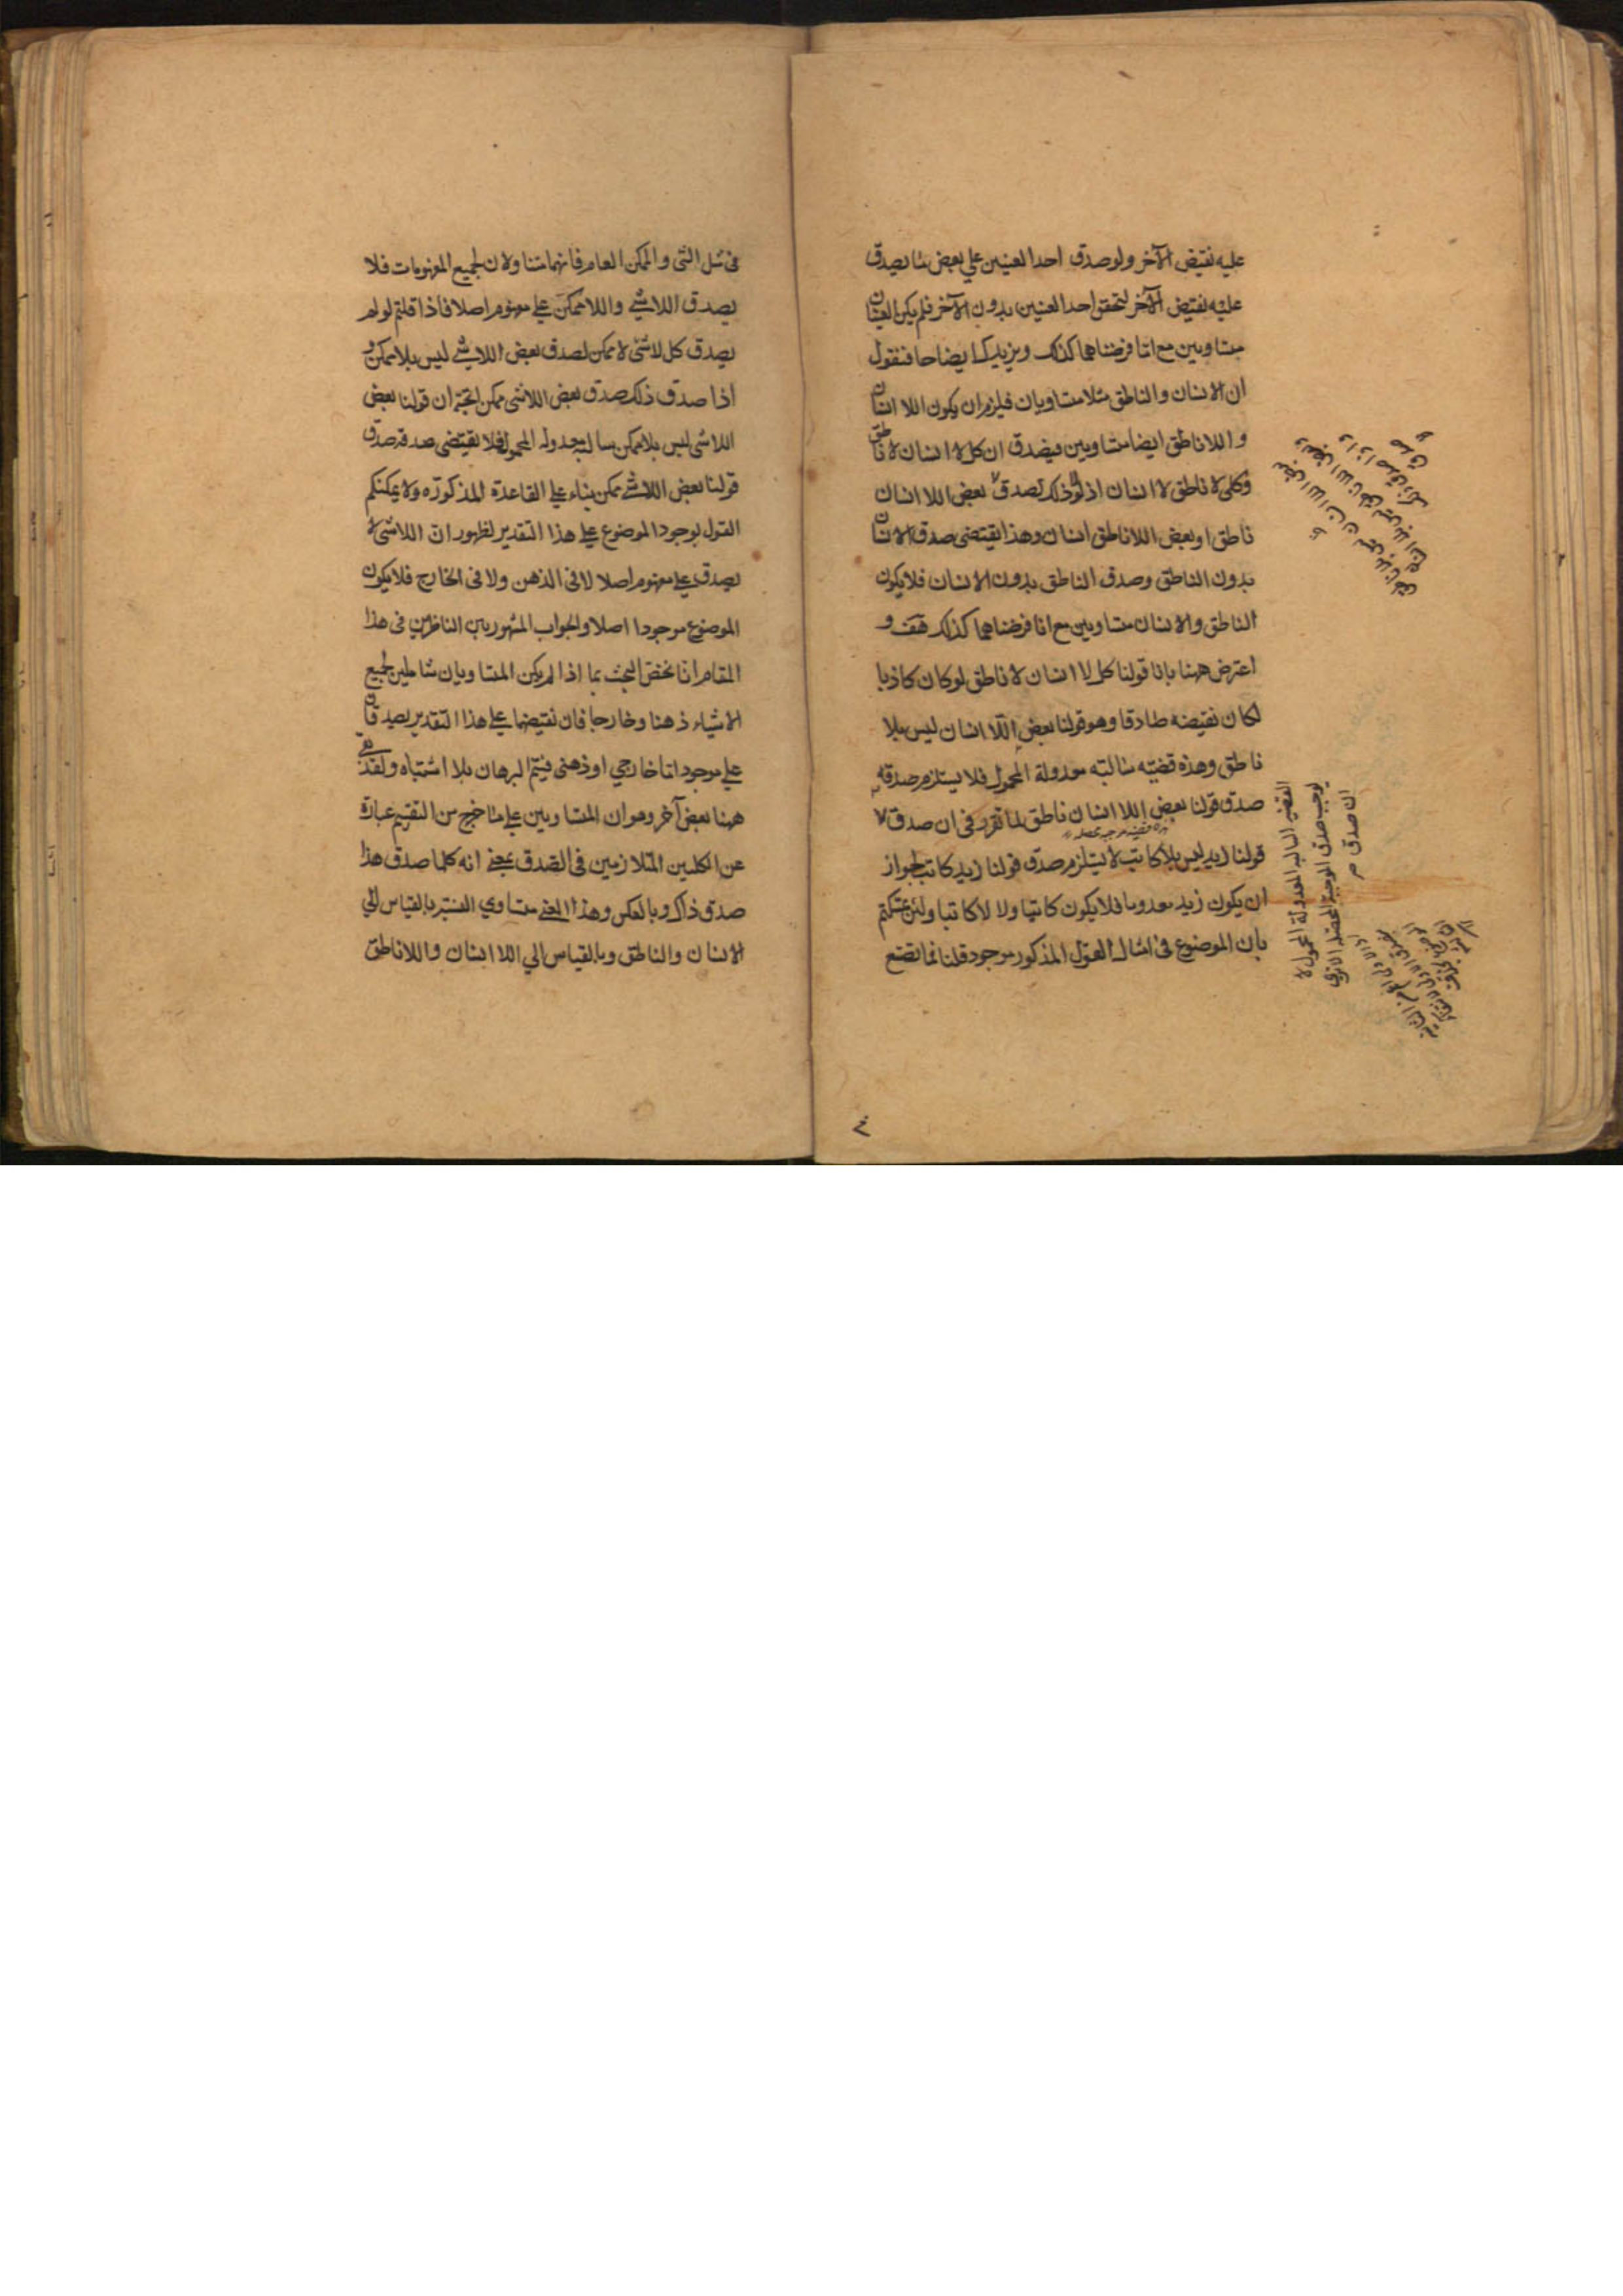 عليه نقيض الآخر ولو صدق احد العينين علي بعض ما يصدق
عليه نقيض الآخر لتحقق احد العينين بدون الآخر فلم يكن العينان
متساويين مع انا فرضناهما كذلك ونزيدك ايضاحا فنقول
ان الانسان والناطق مثلا متساويان فيلزم ان يكون اللا انسان
واللا ناطق ايضا متساويين فيصدق ان كل لا انسان لا ناطق
وكل لا ناطق لا انسان اذ لولا ذلك لصدق بعض اللا انسان
ناطق او بعض اللا ناطق انسان وهذا يقتضى صدق الانسان
بدون الناطق وصدق الناطق بدون الانسان فلا يكون
الناطق والانسان متساويين مع انا فرضناهما كذلك هف و
اعترض ههنا بانا قولنا كل لا انسان لا ناطق لو كان كاذبا
لكان نقيضه صادقا وهو قولنا بعض اللا انسان ليس بلا
ناطق وهذه قضيه سالبه معدولة المحمول فلا يستلزم صدقها
صدق قولنا بعض اللا انسان ناطق لما تقرر فى ان صدق
قولنا زيد ليس بلا كاتب لا يستلزم صدق قولنا زيد كاتب لجواز
ان يكون زيد معدوما فلا يكون كاتبا ولا لا كاتبا ولئن
بان الموضوع فى امثال القول المذكور موجود قلنا فما تصنع
القضية السالبه المعدولة المحمول لا
يوجب صدق الموجبة المحصلة
ان صدق
فى مثل الشى والممكن العام فانهما متناولان لجميع المفهومات فلا
يصدق اللاشي واللاممكن علي مفهوم اصلا فاذا قلتم لو لم
يصدق كل لاشئ لا ممكن لصدق بعض اللاشي ليس بلا ممكن و
اذا صدق ذلك صدق بعض اللاشى ممكن يتجه ان قولنا بعض
اللاشى ليس بلا ممكن سالبة معدولة المحمول فلا يقتضى صدقه صدق
قولنا بعض اللاشي ممكن بناء علي القاعدة المذكورة ولا يمكنكم
القول بوجود الموضوع علي هذا التقدير لظهور ان اللاشى لا
يصدق علي مفهوم اصلا لا فى الذهن ولا فى الخارج فلا يكون
الموضوع موجودا اصلا والجواب المشهور بين الناظرين فى هذا
المقام انا نخص البحث بما اذا لم يكن المتساويان شاملين لجميع
الاشياء ذهنا وخارجا فان نقيضهما علي هذا التقدير يصدقان
علي موجود اما خارجي او ذهنى فيتم البرهان بلا اشتباه ولقد بقي
ههنا بعض آخر وهو ان المتساويين علي ما خرج من التقسيم عبارة
عن الكليين المتلازمين فى الصدق بمعنى انه كلما صدق هذا
صدق ذاك وبالعكس وهذا المعني مساوي النسبة بالقياس الي
الانسان والناطق وبالقياس الي اللا انسان واللا ناطق